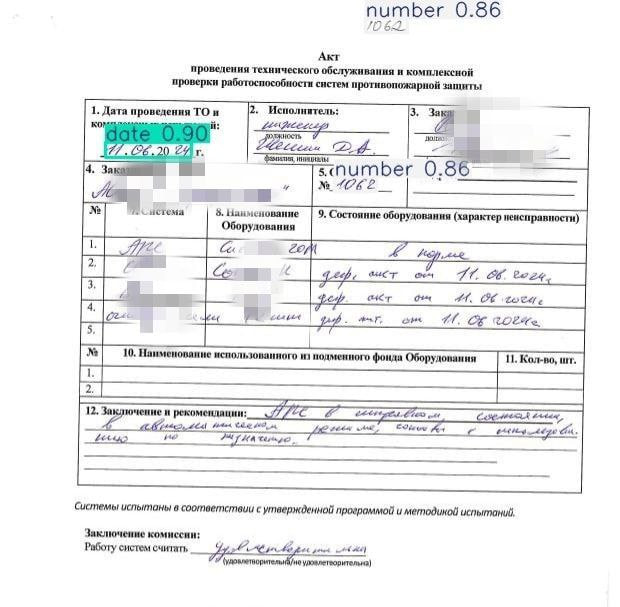 number 0.86
1062
Акт
проведения технического обслуживания и комплексной
проверки работоспособности систем противопожарной защиты
1. Дата проведения ТО и
2. Исполнитель:
3. Зака
date 0.90
й:
инженер
должность
долж
11.06.2024 г.
фамилия, инициалы
4. Зака
5. (
number 0.86
№ 1062
№
7. Система
8. Наименование
Оборудования
9. Состояние оборудования (характер неисправности)
1. АПС в норме
2. деф. акт от 11.06.2024г.
3. деф. акт от 11.06.2024г.
4. от 11.06 2024г.
5.
№
10. Наименование использованного из подменного фонда Оборудования
11. Кол-во, шт.
1.
2.
12. Заключение и рекомендации: АПС в исправном состоянии,
в автоматическом режиме, готова к использова
нию по назначению.
Системы испытаны в соответствии с утвержденной программой и методикой испытаний.
Заключение комиссии:
Работу систем считать удовлетворительна
(удовлетворительна/не удовлетворительна)